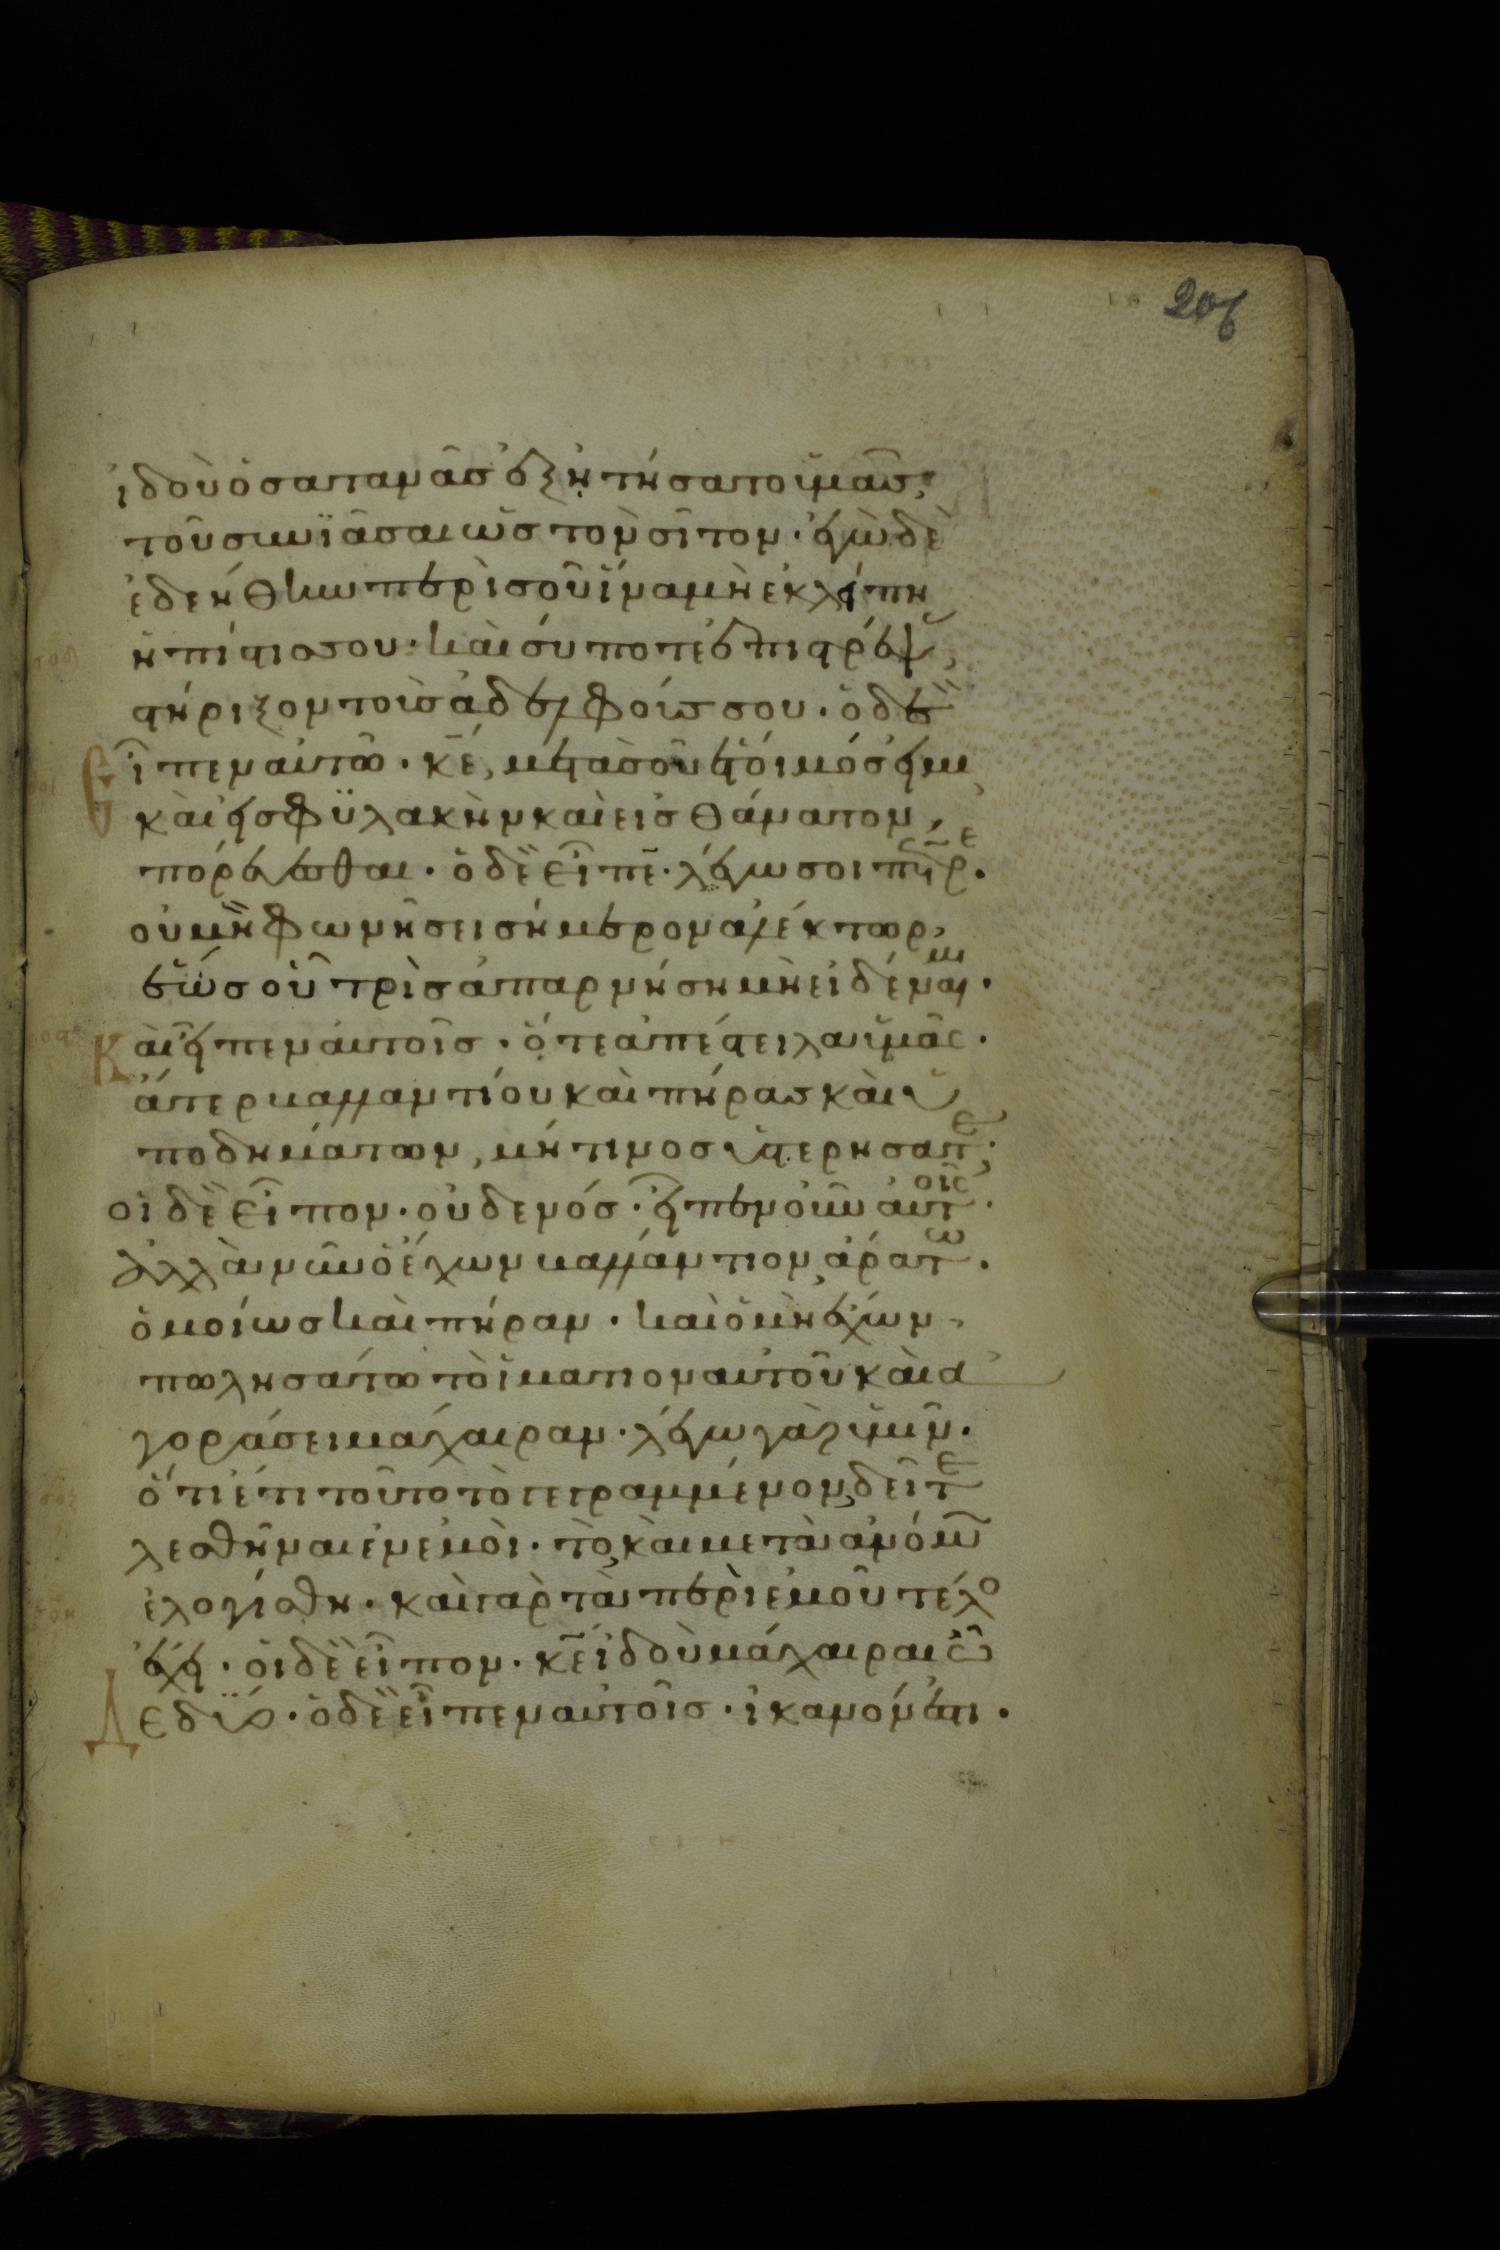 206
ἰδοὺ ὁ σατανᾶσ ἐξητήσατο ὑμᾶσ,
τοῦ σινϊᾶσαι ὡσ τὸν σῖτον· ἐγὼ δὲ
ἐδεήθην περὶ σοῦ ἵνα μὴ ἐκλείπη
ἡ πίστισ σου· καὶ σύ ποτε ἐπιστρέψασ,
στήριξον τοὺσ ἀδελφούσ σου· ὁ δὲ
εἶπεν αὐτῶ· κ̅ε̅, μετὰ σοῦ ἕτοιμόσ εἰμι
καὶ εἰσ φϋλακὴν καὶ εἰσ θάνατον,
πορεύεσθαι· ὁ δὲ εἶπε̅· λέγω σοι πέτρε·
οὐ μὴ φωνήσει σήμερον ἀλέκτωρ,
ἕωσ οὗ τρὶσ ἀπαρνήση μὴ εἰδέναι με·
Καὶ εἶπεν αὐτοῖσ· ὅτε ἀπέστειλα ὑμᾶσ·
ἄτερ βαλλαντίου καὶ πήρασ καὶ ὑ
ποδημάτων, μή τινοσ ὑστερήσατε·
οἱ δὲ εἶπον· οὐδενόσ· εἶπεν οὖν αὐτοῖσ·
ἀλλὰ νῦν ὁ ἔχων βαλλάντιον, ἀράτω·
ὁμοίωσ καὶ πήραν· καὶ ὁ μὴ ἔχων,
πωλησάτω τὸ ἱμάτιον αὐτοῦ καὶ ἀ
γοράσει μάχαιραν· λέγω γὰρ ὑμῖν·
ὅτι ἔτι τοῦτο τὸ γεγραμμένον, δεῖ τε
λεσθῆναι ἐν ἐμοὶ· τὸ, καὶ μετὰ ἀνόμων
ἐλογίσθη· καὶ γὰρ τὰ περὶ ἐμοῦ τέλο
ἔχει· οἱ δὲ εἶπον· κ̅ε̅ ἰδοὺ μάχαιραι ὧ
δε δύο· ὁ δὲ εἶπεν αὐτοῖσ· ἱκανόν ἐστι·